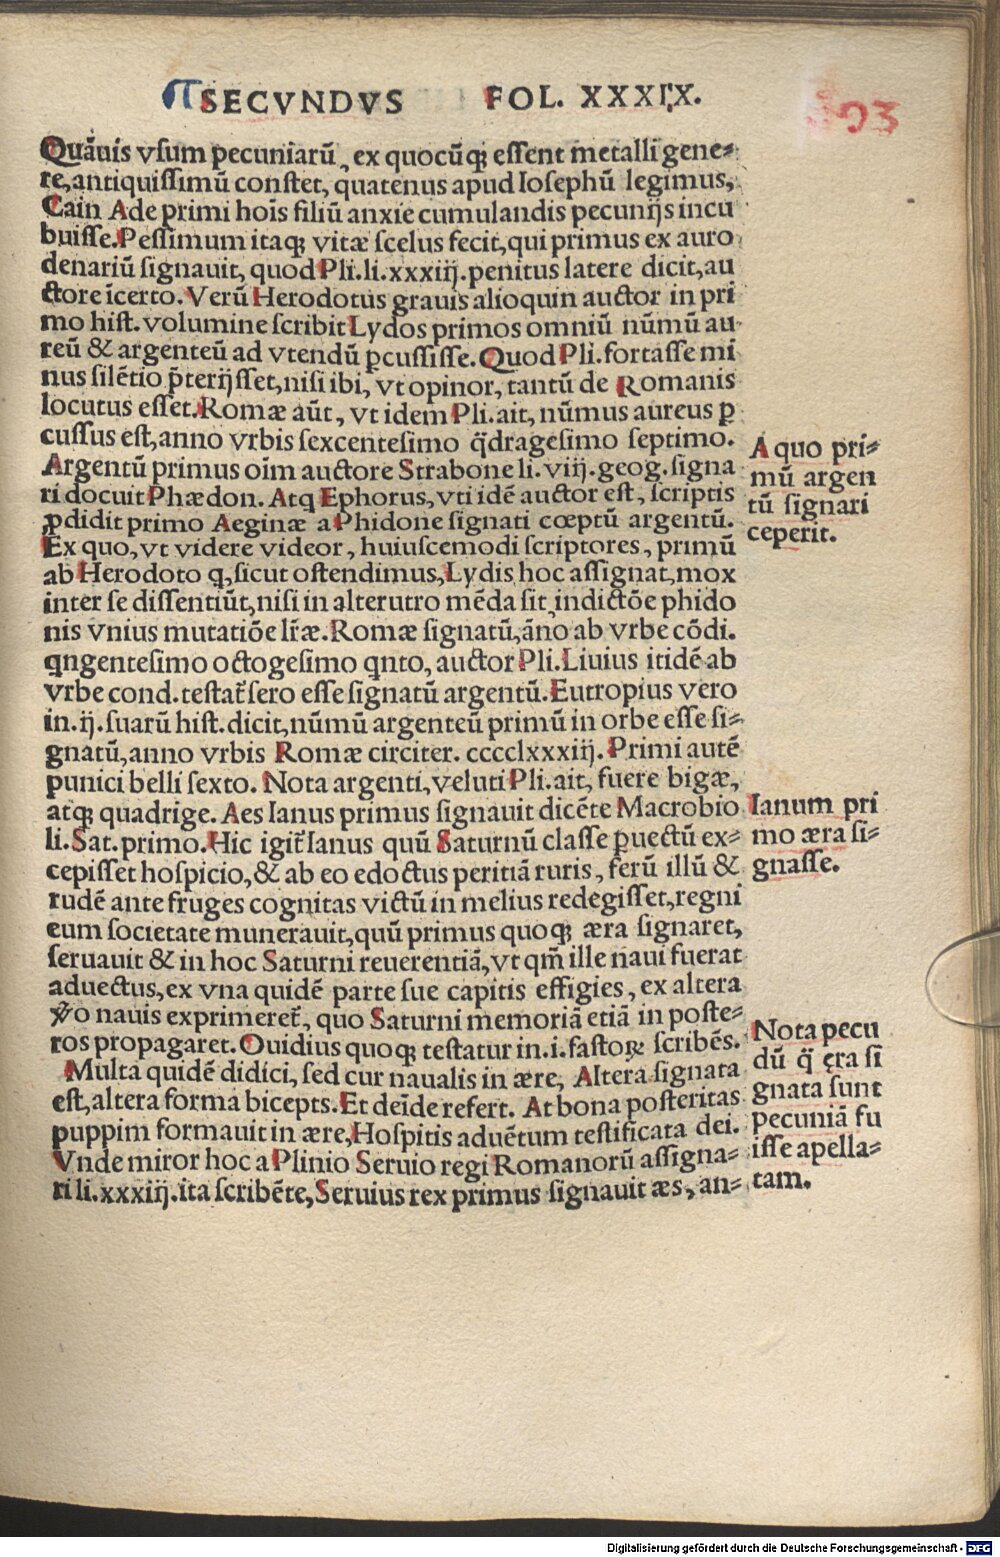 SECVNDVS FOL. XXXIX.
93
Quãuis vsum pecuniarũ, ex quocũq; essent metalli gene⸗
re, antiquissimũ constet, quatenus apud Iosephũ legimus,
Cain Ade primi hoĩs filiũ anxie cumulandis pecunijs incu
buisse. Pessimum itaq; vitæ scelus fecit, qui primus ex auro
denariũ signauit, quod Pli. li. xxxiij. penitus latere dicit, au
ctore ĩcerto. Verũ Herodotus grauis alioquin auctor in pri
mo hist. volumine scribit Lydos primos omniũ nũmũ au
reũ & argenteũ ad vtendũ ꝑcussisse. Quod Pli. fortasse mi
nus silẽtio p̃terijsset, nisi ibi, vt opinor, tantũ de Romanis
locutus esset. Romæ aũt, vt idem Pli. ait, nũmus aureus ꝑ
cussus est, anno vrbis sexcentesimo q̃dragesimo septimo.
Argentũ primus oĩm auctore Strabone li. viij. geog. signa
ri docuit Phædon. Atq Ephorus, vti idẽ auctor est, scriptis
ꝓdidit primo Aeginæ a Phidone signati cœptũ argentũ.
Ex quo, vt videre videor, huiuscemodi scriptores, primũ
ab Herodoto q, sicut ostendimus, Lydis hoc assignat, mox
inter se dissentiũt, nisi in alterutro mẽda sit, indictõe phido
nis vnius mutatiõe lr̃æ. Romæ signatũ, ãno ab vrbe cõdi.
qngentesimo octogesimo qnto, auctor Pli. Liuius itidẽ ab
vrbe cond. testat̃ sero esse signatũ argentũ. Eutropius vero
in. ij. suarũ hist. dicit, nũmũ argenteũ primũ in orbe esse si⸗
gnatũ, anno vrbis Romæ circiter. cccclxxxiij. Primi autẽ
punici belli sexto. Nota argenti, veluti Pli. ait, fuere bigæ,
atq; quadrige. Aes Ianus primus signauit dicẽte Macrobio
li. Sat. primo. Hic igit̃ Ianus quũ Saturnũ classe ꝑuectũ ex⸗
cepisset hospicio, & ab eo edoctus peritiã ruris, ferũ illũ &
rudẽ ante fruges cognitas victũ in melius redegisset, regni
eum societate munerauit, quũ primus quoq; æra signaret,
seruauit & in hoc Saturni reuerentiã, vt qm̃ ille naui fuerat
aduectus, ex vna quidẽ parte sue capitis effigies, ex altera
v̾o nauis exprimeret̃, quo Saturni memoriã etiã in poste⸗
ros propagaret. Ouidius quoq; testatur in. i. fastoꝝ scribẽs.
Multa quidẽ didici, sed cur naualis in ære, Altera signata
est, altera forma bicepts. Et deĩde refert. At bona posteritas
puppim formauit in ære, Hospitis aduẽtum testificata dei.
Vnde miror hoc a Plinio Seruio regi Romanorũ assigna⸗
ri li. xxxiij. ita scribẽte, Seruius rex primus signauit æs, an⸗
A quo pri⸗
mũ argen
tũ signari
ceperit.
Ianum pri
mo æra si⸗
gnasse.
Nota pecu
dũ q̃ ęra si
gnata sunt
pecuniã fu
isse apella⸗
tam.
Digitalisierung gefördert durch die Deutsche Forschungsgemeinschaft - DFG